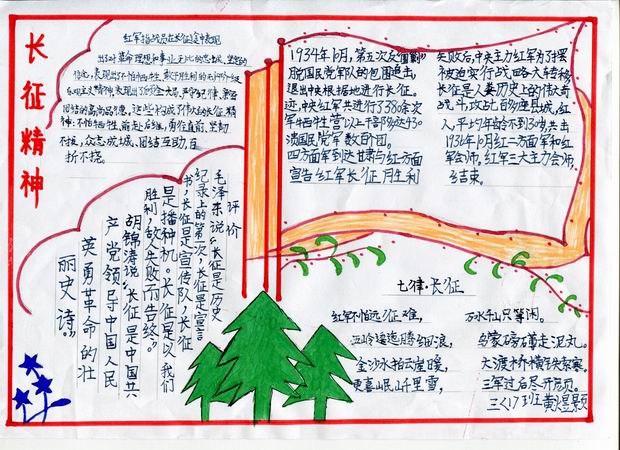 长征精神
红军指战员在长征途中表现
出了对革命理想和事业无比的忠诚、坚定的
信念,表现出不怕牺牲、敢于胜利的无产阶级
乐观主义精神,表现出了顾全大局、严守纪律、亲密
团结的高尚品德,这些构成了伟大的长征精
神:不怕牺牲、前赴后继,勇往直前、坚韧
不拔,众志成城、团结互助,百
折不挠。
1934年10月,第五次反"围剿"
脱国民党军队的包围追击,
退出中央根据地进行长征。
迹,中央红军共进行了380余次
军牺牲营以上干部多达430
溃国民党军数百个团。
四方面军到达甘肃与红方面
宣告红军长征胜利
失败后,中央主力红军为了摆
被迫实行战略大转移
长征是人类历史上的伟大奇
战斗,攻占百多座县城,红
人,平均年龄不到30岁,共击
1936年10月红二方面军和红
军会师,红军三大主力会师,
结束。
评价
毛泽东说:"长征是历史
纪录上的第一次,长征是宣言
书,长征是宣传队,长征
是播种机。长征是以我们
胜利,敌人失败而告终。"
胡锦涛说"长征是中国共
产党领导中国人民
英勇革命的壮
丽史诗。"
七律·长征
红军不怕远征难,
万水千山只等闲。
五岭逶迤腾细浪,
乌蒙磅礴走泥丸。
金沙水拍云崖暖,
大渡桥横铁索寒。
更喜岷山千里雪,
三军过后尽开颜。
三<17>班 黄煜景